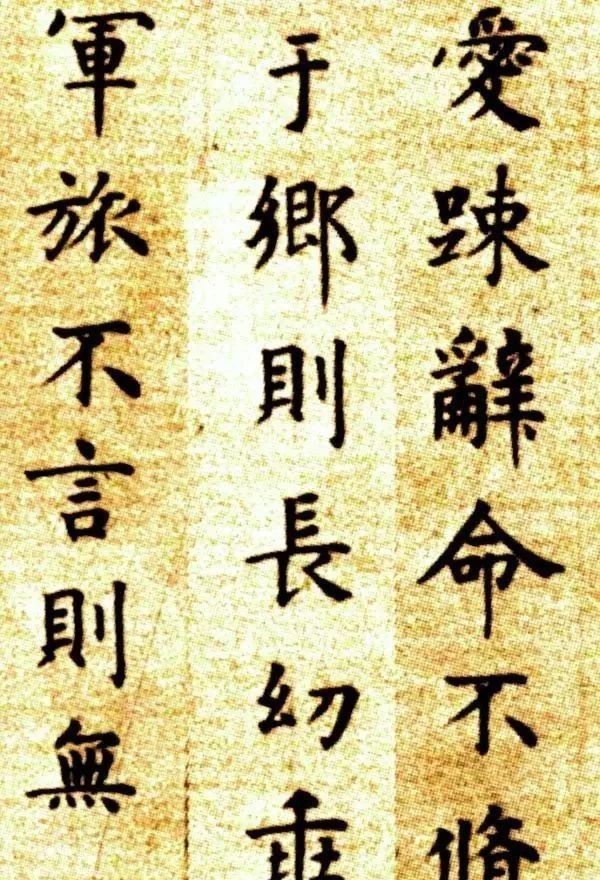 愛踈辭命不脩
于鄉則長幼乖
軍旅不言則無